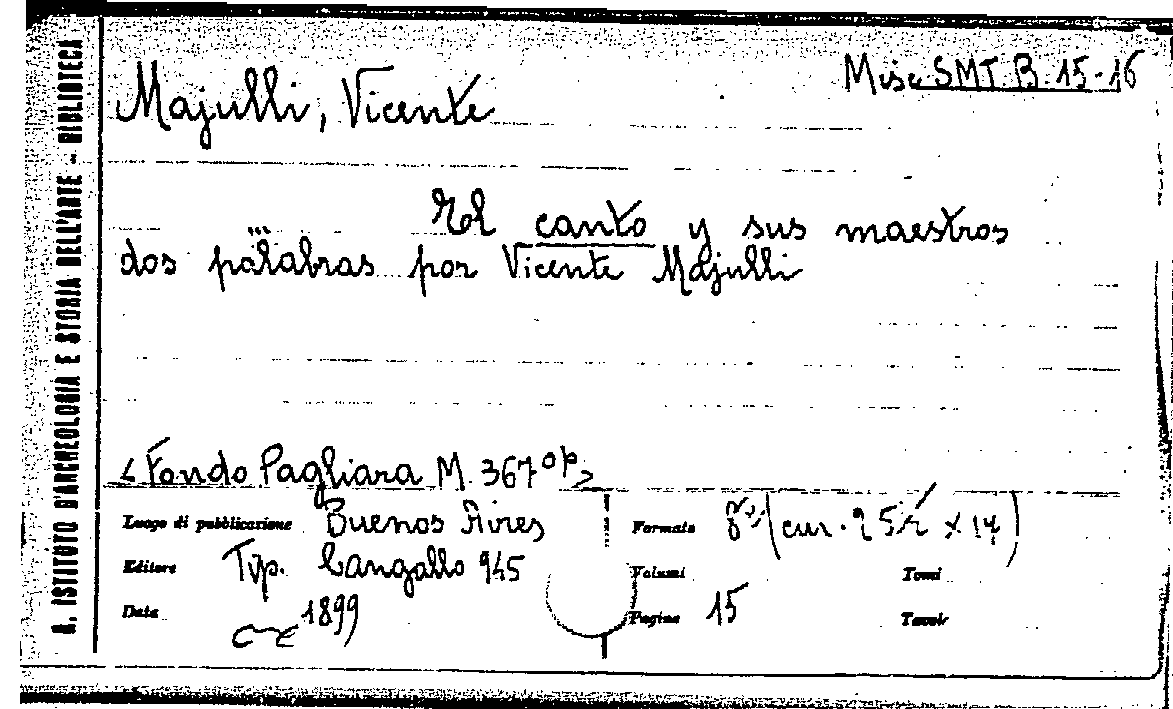 R. ISTITUTO D'ARCHEOLOGIA E STORIA DELL'ARTE - BIBLIOTECA
Majulli, Vicente
Misc SMT B 15-16
El canto y sus maestros
dos palabras por Vicente Majulli
<Fondo Pagliara M 367 op>
Luogo di pubblicazione Buenos Aires
Formato 8º (cm.
Editore Typ. Cangallo 945
Volumi
Tomi
Data 1899
Pagine 15
Tavole